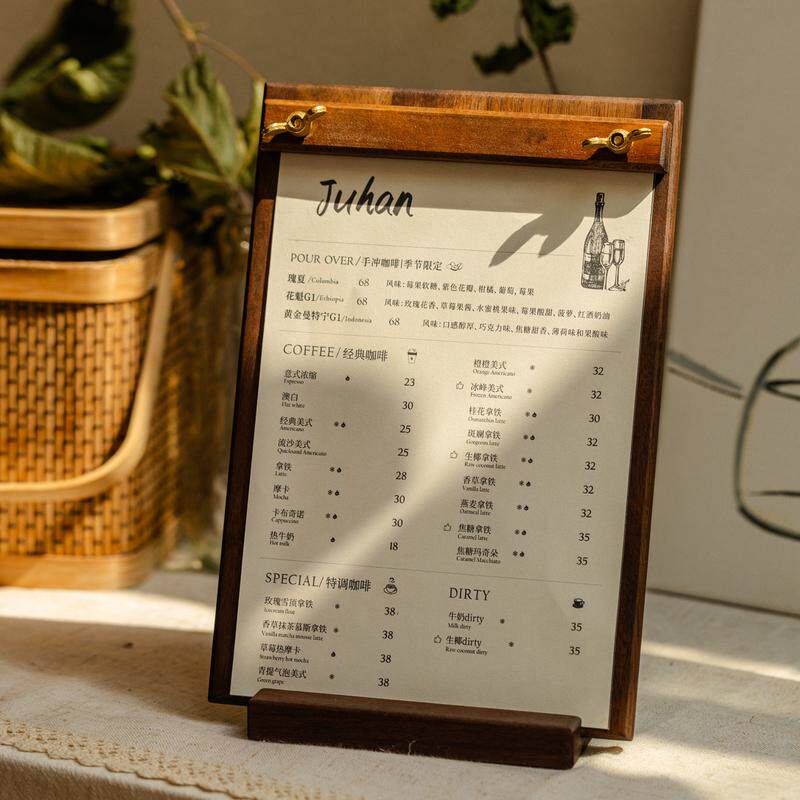 Juhan
POUR OVER/手冲咖啡|季节限定
瑰夏/Columbia 68 风味:莓果软糖、紫色花瓣、柑橘、葡萄、莓果
花魁G1/Ethiopia 68 风味:玫瑰花香、草莓果酱、水蜜桃果味、莓果酸甜、菠萝、红酒奶油
黄金曼特宁G1/Indonesia 68 风味:口感醇厚、巧克力味、焦糖甜香、薄荷味和果酸味
COFFEE/经典咖啡
意式浓缩 23
Espresso
澳白 30
Flat white
经典美式 25
Americano
流沙美式 25
Quicksand Americano
拿铁 28
Latte
摩卡 30
Mocha
卡布奇诺 30
Cappuccino
热牛奶 18
Hot milk
橙橙美式 32
Orange Americano
冰峰美式 32
Frozen Americano
桂花拿铁 30
Osmanthus latte
斑斓拿铁 32
Gorgeous latte
生椰拿铁 32
Raw coconut latte
香草拿铁 32
Vanilla latte
燕麦拿铁 32
Oatmeal latte
焦糖拿铁 35
Caramel latte
焦糖玛奇朵 35
Caramel Macchiato
SPECIAL/特调咖啡
玫瑰雪顶拿铁 38
Icecream float
香草抹茶慕斯拿铁 38
Vanilla matcha mousse latte
草莓热摩卡 38
Strawberry hot mocha
青提气泡美式 38
Green grape
DIRTY
牛奶dirty 35
Milk dirty
生椰dirty 35
Raw coconut dirty